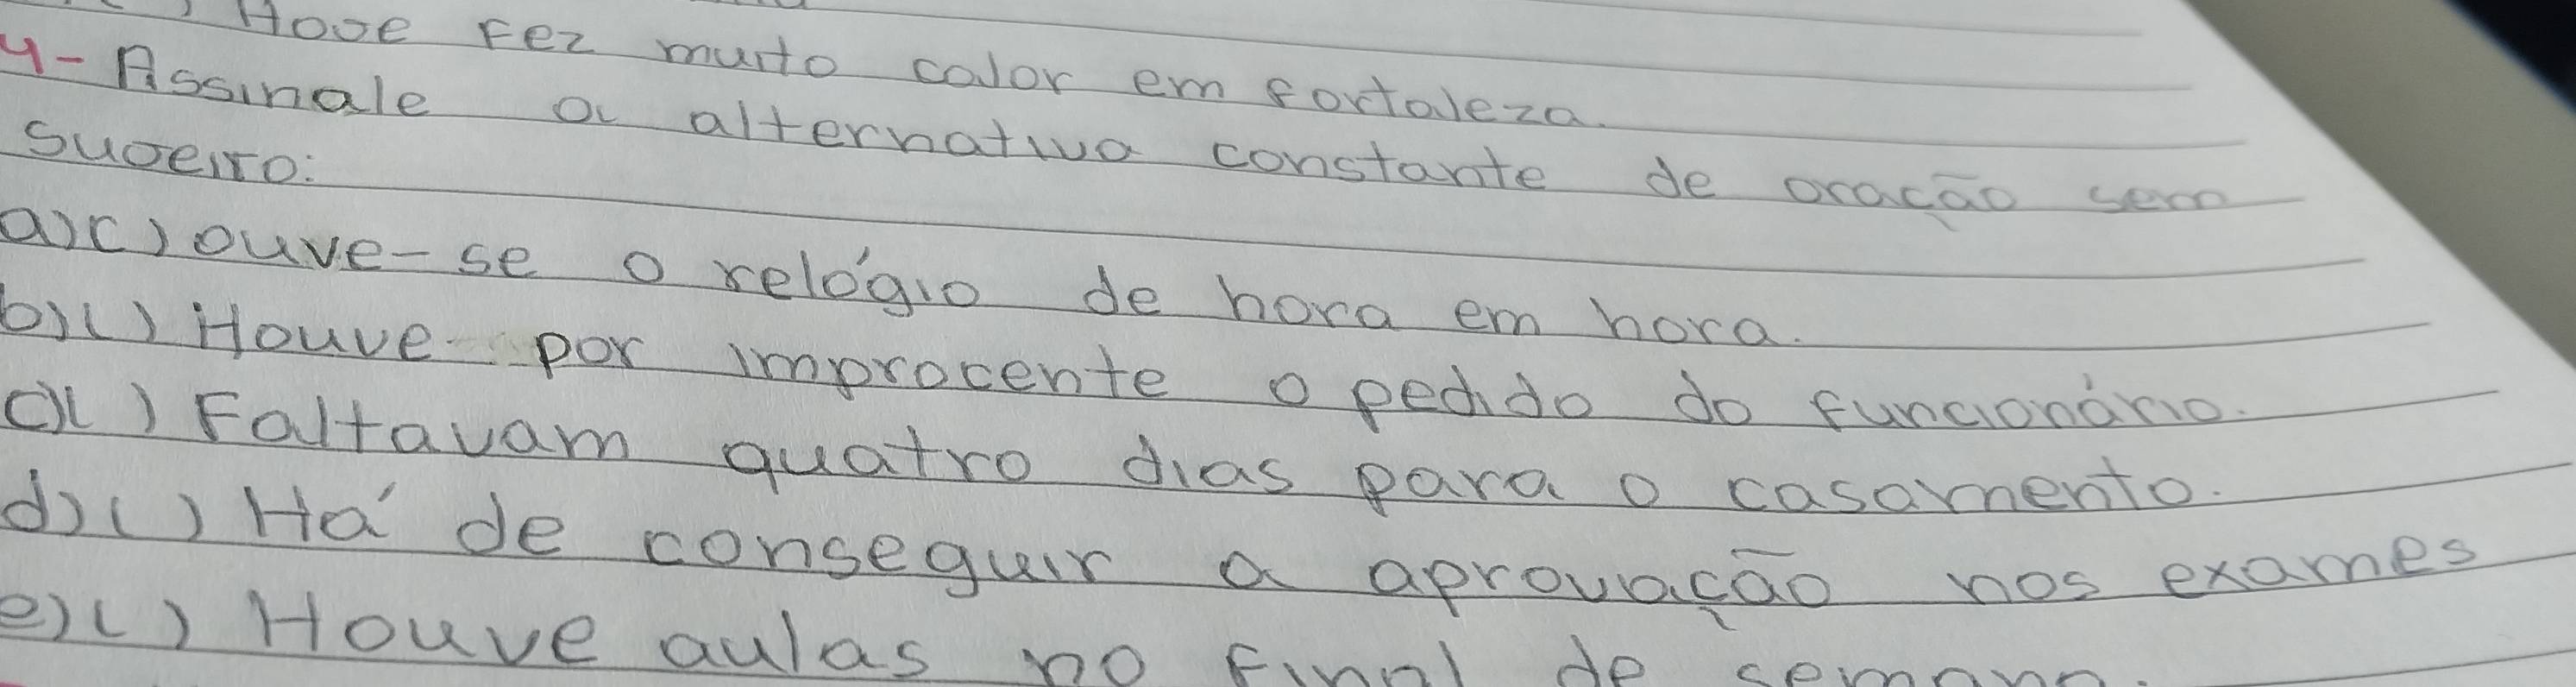 Hoje Fez muito calor em fortaleza.
4- Assinale a alternativa constante de oração sem
sujeito:
a) ( ) ouve-se o relógio de hora em hora.
b) ( ) Houve por improcente o pedido do funcionário.
c) ( ) Faltavam quatro dias para o casamento.
d) ( ) Há de conseguir a aprovação nos exames
e) ( ) Houve aulas no final de semana.